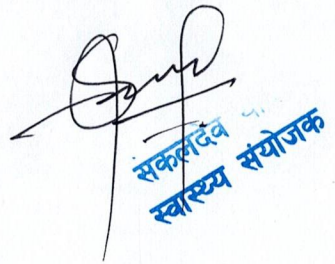 संकलदेव
स्वास्थ्य संयोजक